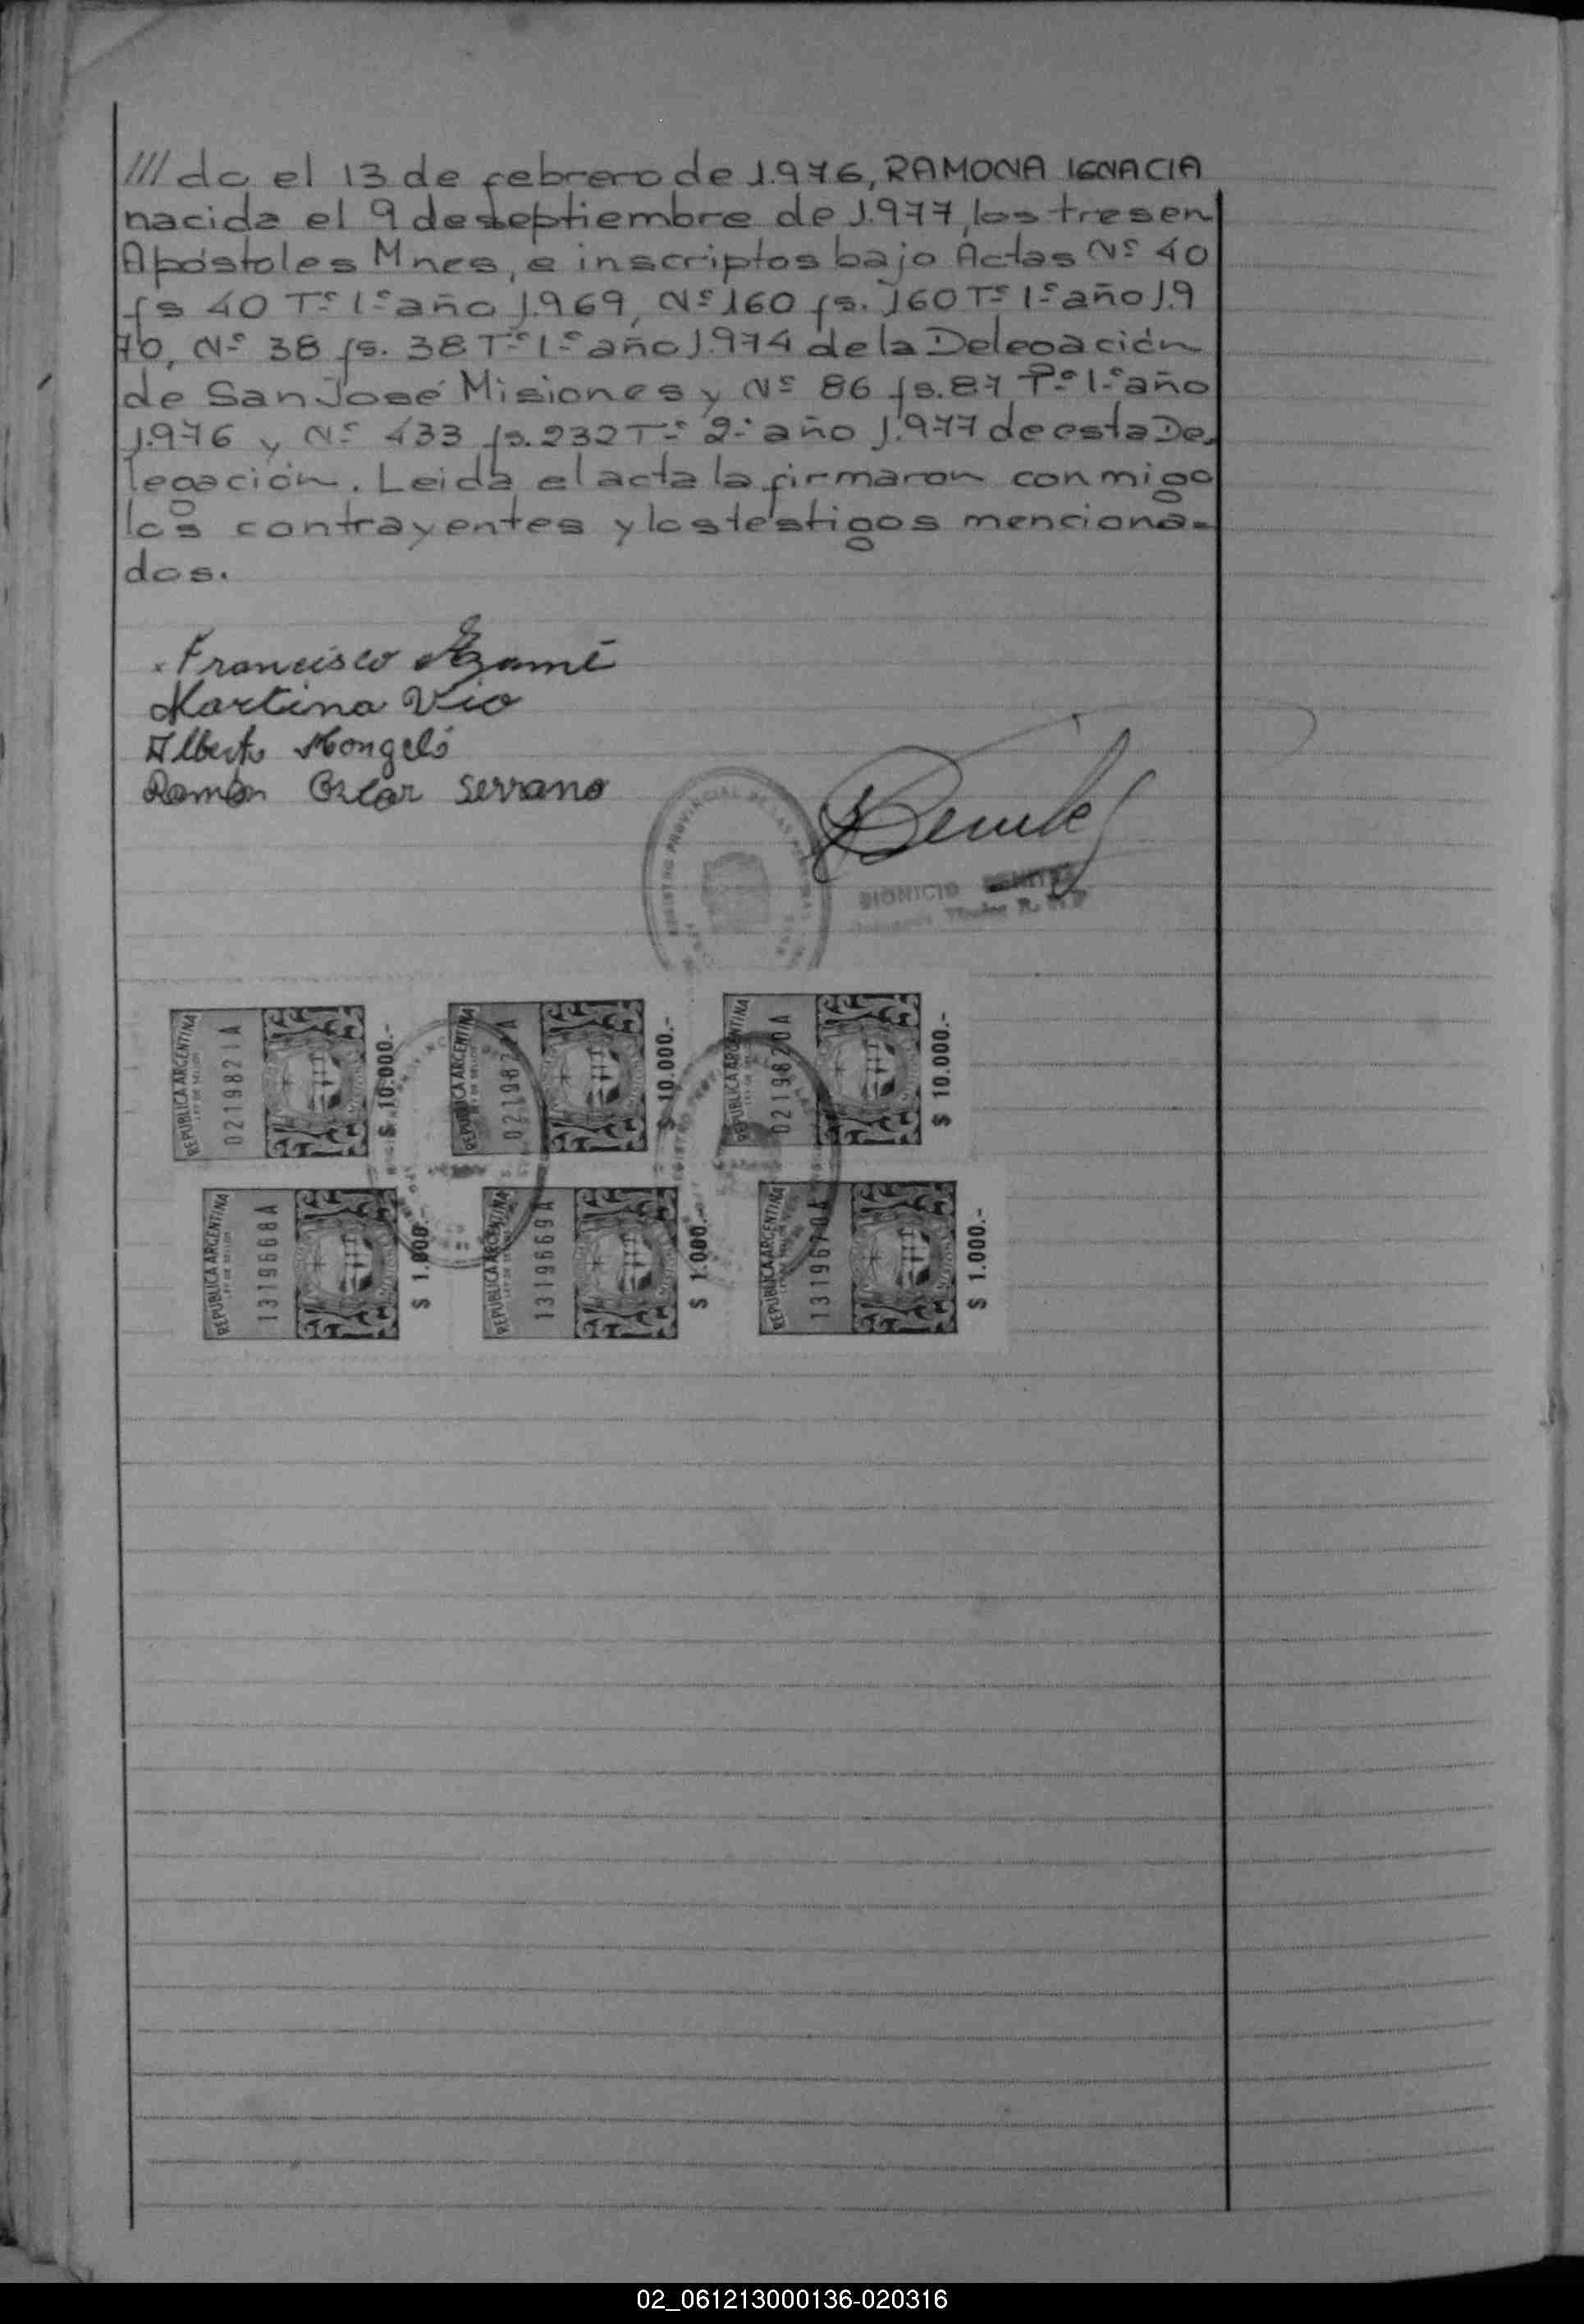 /// do el 13 de febrero de 1.976, RAMONA IGNACIA
nacida el 9 de septiembre de 1.977, los tres en
Apóstoles Mnes, e inscriptos bajo Actas Nº 40
fs 40 Tº 1º año 1.969, Nº 160 fs. 160 Tº 1º año 1.9
70, Nº 38 fs. 38 Tº 1º año 1.974 de la Delegación
de San José Misiones y Nº 86 fs. 87 Tº 1º año
1.976 y Nº 433 fs. 232 Tº 2º año 1.977 de esta De-
legación. Leida el acta la firmaron conmigo
los contrayentes y los testigos menciona-
dos.
Francisco
Martina Vio
Alberto Mongeló
Ramón Oscar Serrano
REGISTRO PROVINCIAL DE LAS PERSONAS
DIONICIO BENITEZ
REPUBLICA ARGENTINA 0219821A $ 10.000.-
REPUBLICA ARGENTINA $ 10.000.-
REPUBLICA ARGENTINA 0219820A $ 10.000.-
REPUBLICA ARGENTINA 1319668A $ 1.000.-
REPUBLICA ARGENTINA 1319669A $ 1.000.-
REPUBLICA ARGENTINA 1319670A $ 1.000.-
02_061213000136-020316